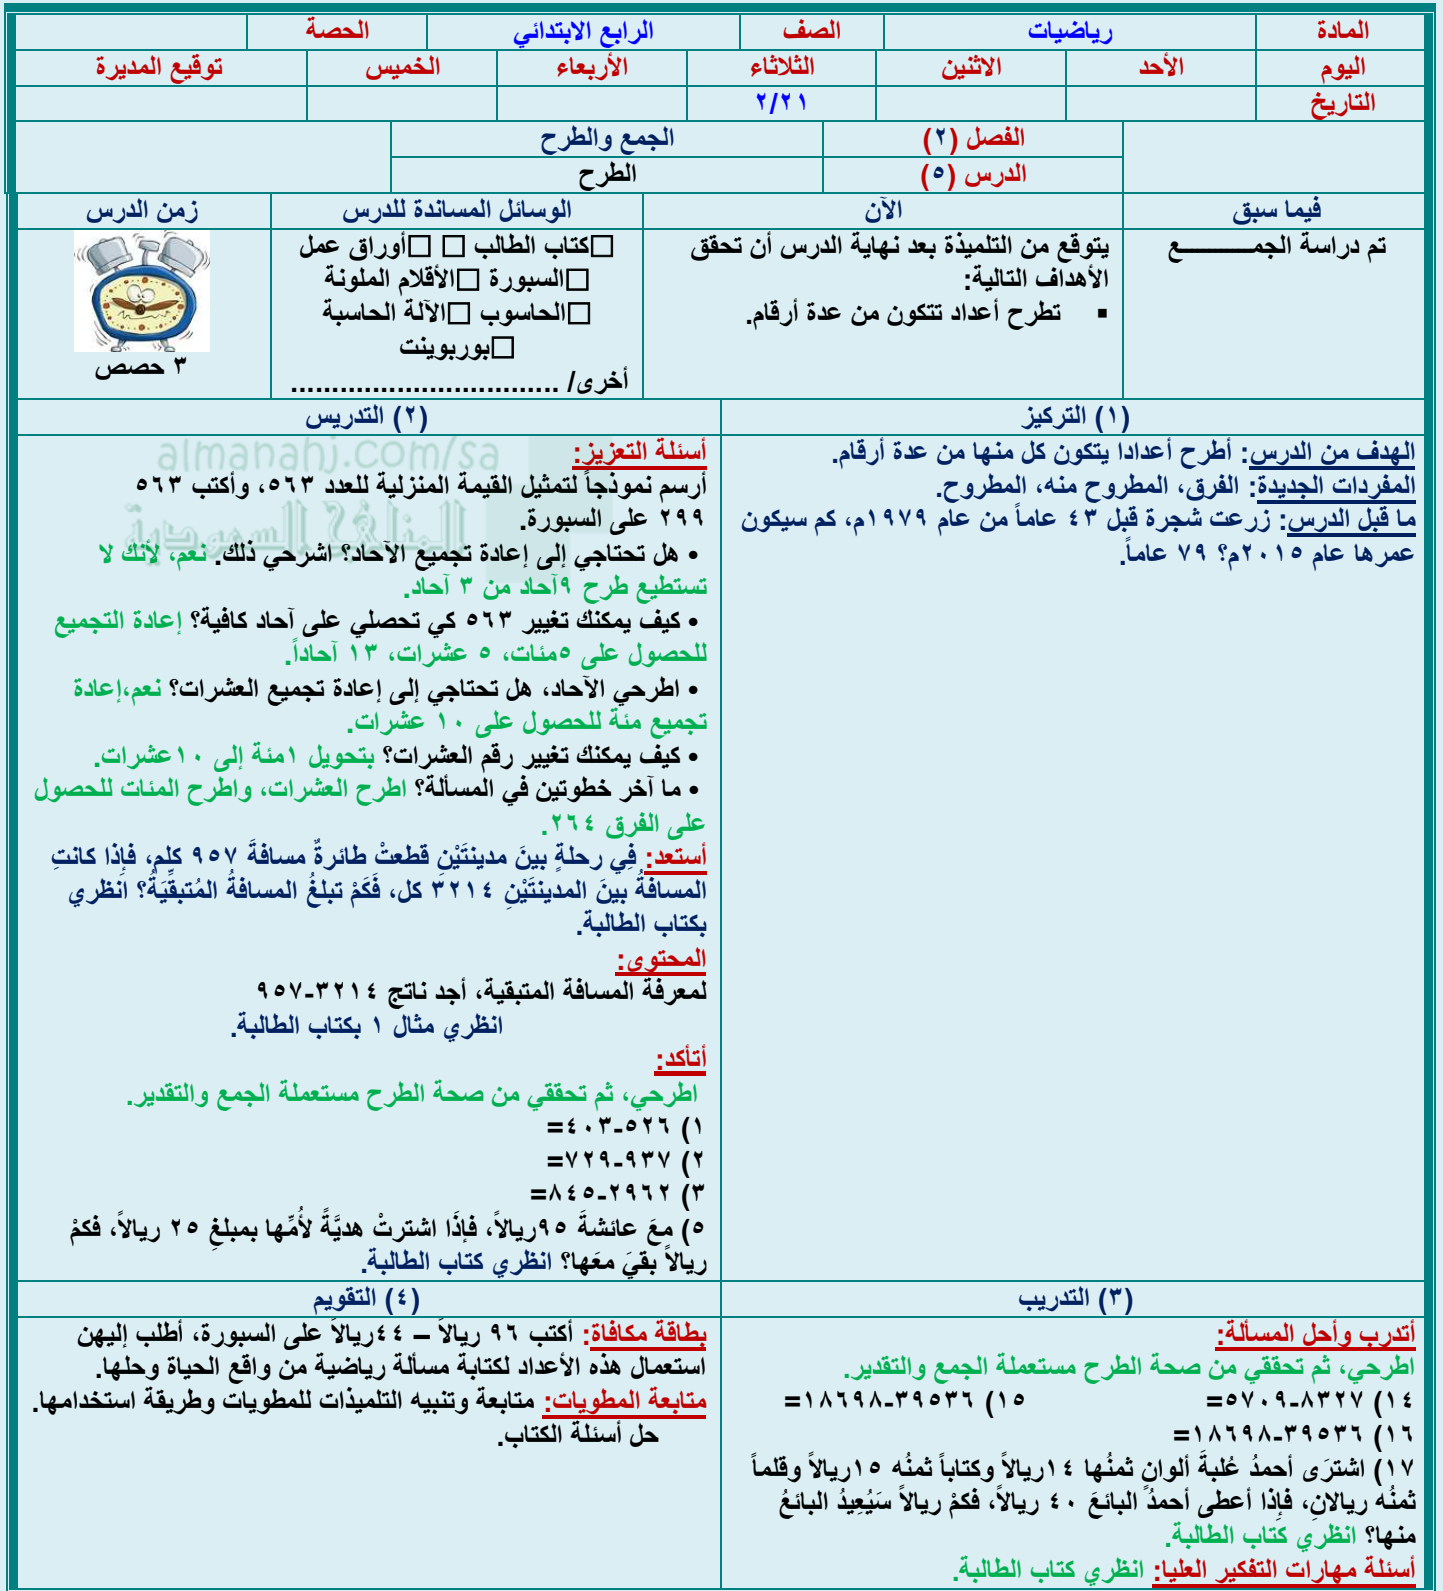 المادة رياضيات الصف الرابع الابتدائي الحصة
اليوم الأحد الاثنين الثلاثاء الأربعاء الخميس توقيع المديرة
التاريخ ٢/٢١
الفصل (٢) الجمع والطرح
الدرس (٥) الطرح
فيما سبق الآن الوسائل المساندة للدرس زمن الدرس
تم دراسة الجمـــــــــع
يتوقع من التلميذة بعد نهاية الدرس أن تحقق
الأهداف التالية:
▪ تطرح أعداد تتكون من عدة أرقام.
□كتاب الطالب □ □أوراق عمل
□السبورة □الأقلام الملونة
□الحاسوب □الآلة الحاسبة
□بوربوينت
أخرى/ ................................
٣ حصص
(١) التركيز
الهدف من الدرس: أطرح أعدادا يتكون كل منها من عدة أرقام.
المفردات الجديدة: الفرق، المطروح منه، المطروح.
ما قبل الدرس: زرعت شجرة قبل ٤٣ عاماً من عام ١٩٧٩م، كم سيكون
عمرها عام ٢٠١٥م؟ ٧٩ عاماً.
(٢) التدريس
almanahj.com/sa
المناهج السعودية
أسئلة التعزيز:
أرسم نموذجاً لتمثيل القيمة المنزلية للعدد ٥٦٣، وأكتب ٥٦٣
٢٩٩ على السبورة.
• هل تحتاجي إلى إعادة تجميع الآحاد؟ اشرحي ذلك. نعم، لأنك لا
تستطيع طرح ٩آحاد من ٣ آحاد.
• كيف يمكنك تغيير ٥٦٣ كي تحصلي على آحاد كافية؟ إعادة التجميع
للحصول على ٥مئات، ٥ عشرات، ١٣ آحاداً.
• اطرحي الآحاد، هل تحتاجي إلى إعادة تجميع العشرات؟ نعم،إعادة
تجميع مئة للحصول على ١٠ عشرات.
• كيف يمكنك تغيير رقم العشرات؟ بتحويل ١مئة إلى ١٠عشرات.
• ما آخر خطوتين في المسألة؟ اطرح العشرات، واطرح المئات للحصول
على الفرق ٢٦٤.
أستعد: فِي رحلةٍ بينَ مدينتَيْنِ قطعتْ طائرةٌ مسافةَ ٩٥٧ كلم، فإِذا كانتِ
المسافةُ بينَ المدينتَيْنِ ٣٢١٤ كل، فَكَمْ تبلغُ المسافةُ المُتبقِّيَةُ؟ انظري
بكتاب الطالبة.
المحتوى:
لمعرفة المسافة المتبقية، أجد ناتج ٣٢١٤-٩٥٧
انظري مثال ١ بكتاب الطالبة.
أتأكد:
اطرحي، ثم تحققي من صحة الطرح مستعملة الجمع والتقدير.
١) ٥٢٦-٤٠٣=
٢) ٩٣٧-٧٢٩=
٣) ٢٩٦٢-٨٤٥=
٥) معَ عائشةَ ٩٥ريالاً، فإذَا اشترتْ هديَّةً لأُمِّها بمبلغِ ٢٥ ريالاً، فكمْ
ريالاً بقيَ معَها؟ انظري كتاب الطالبة.
(٣) التدريب
أتدرب وأحل المسألة:
اطرحي، ثم تحققي من صحة الطرح مستعملة الجمع والتقدير.
١٤) ٨٣٢٧-٥٧٠٩= ١٥) ٣٩٥٣٦-١٨٦٩٨=
١٦) ٣٩٥٣٦-١٨٦٩٨=
١٧) اشترَى أحمدُ عُلبةَ ألوانٍ ثمنُها ١٤ريالاً وكتاباً ثمنُه ١٥ريالاً وقلماً
ثمنُه ريالانِ، فإذا أعطى أحمدُ البائعَ ٤٠ ريالاً، فكمْ ريالاً سَيُعِيدُ البائعُ
منها؟ انظري كتاب الطالبة.
أسئلة مهارات التفكير العليا: انظري كتاب الطالبة.
(٤) التقويم
بطاقة مكافاة: أكتب ٩٦ ريالاً – ٤٤ريالاً على السبورة، أطلب إليهن
استعمال هذه الأعداد لكتابة مسألة رياضية من واقع الحياة وحلها.
متابعة المطويات: متابعة وتنبيه التلميذات للمطويات وطريقة استخدامها.
حل أسئلة الكتاب.